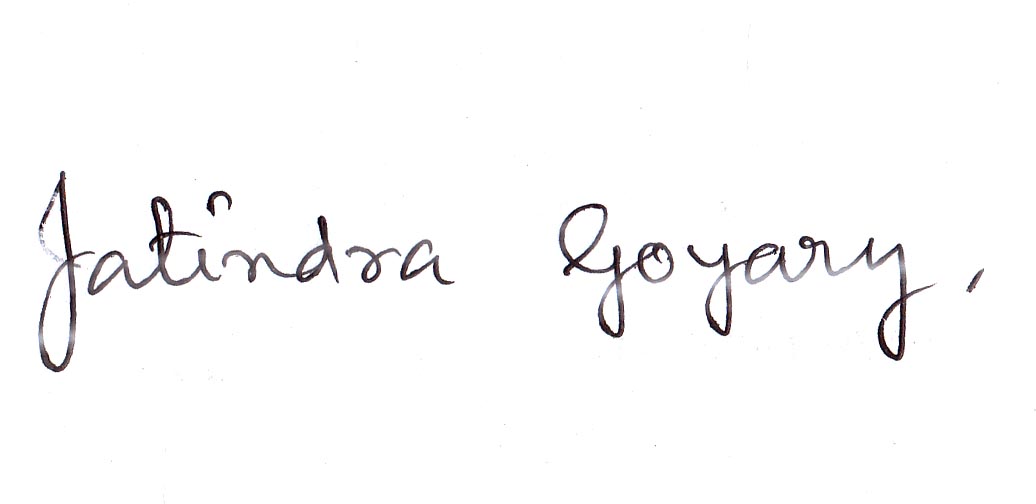 Jatindra Goyary,